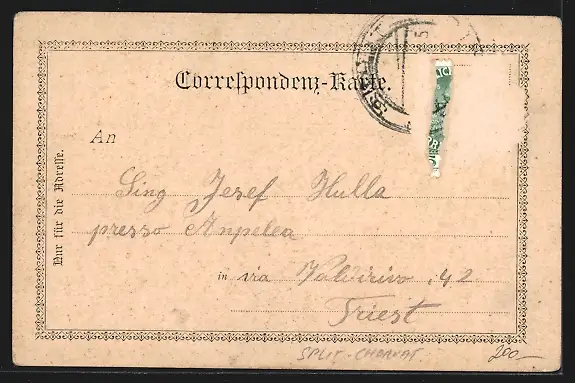 Correspondenz-Karte.
An
Nur für die Adresse.
Sing Josef Hulla
presso Anpelea
in via Valdirivo 42
Triest
SPLIT - CHORVAT.
200,-